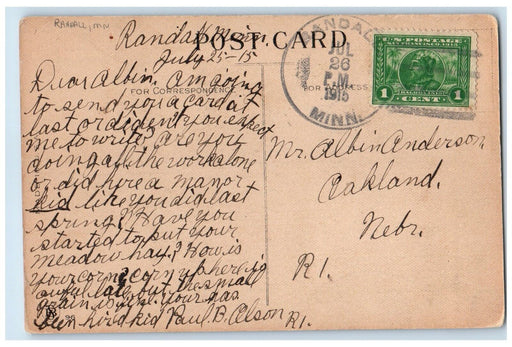 RANDALL, MN
Randall Minn.
POST CARD.
July 25-15
Dear Albin. Am going
to send you a card at
FOR CORRESPONDENCE
last or didn't you expect
me to write? Are you
doing all the work alone
or did hire a man or
kid like you did last
spring? Have you
started to put your
meadow hay? How is
your corn? corn up here is
awful late but the small
grain is
been hired kid Paul B. Olson R1.
RANDALL
JUL
26
P.M
1915
MINN.
U.S. POSTAGE
SAN FRANCISCO 1915
1 CENT 1
Mr. Albin Anderson
Oakland.
Nebr.
R1.